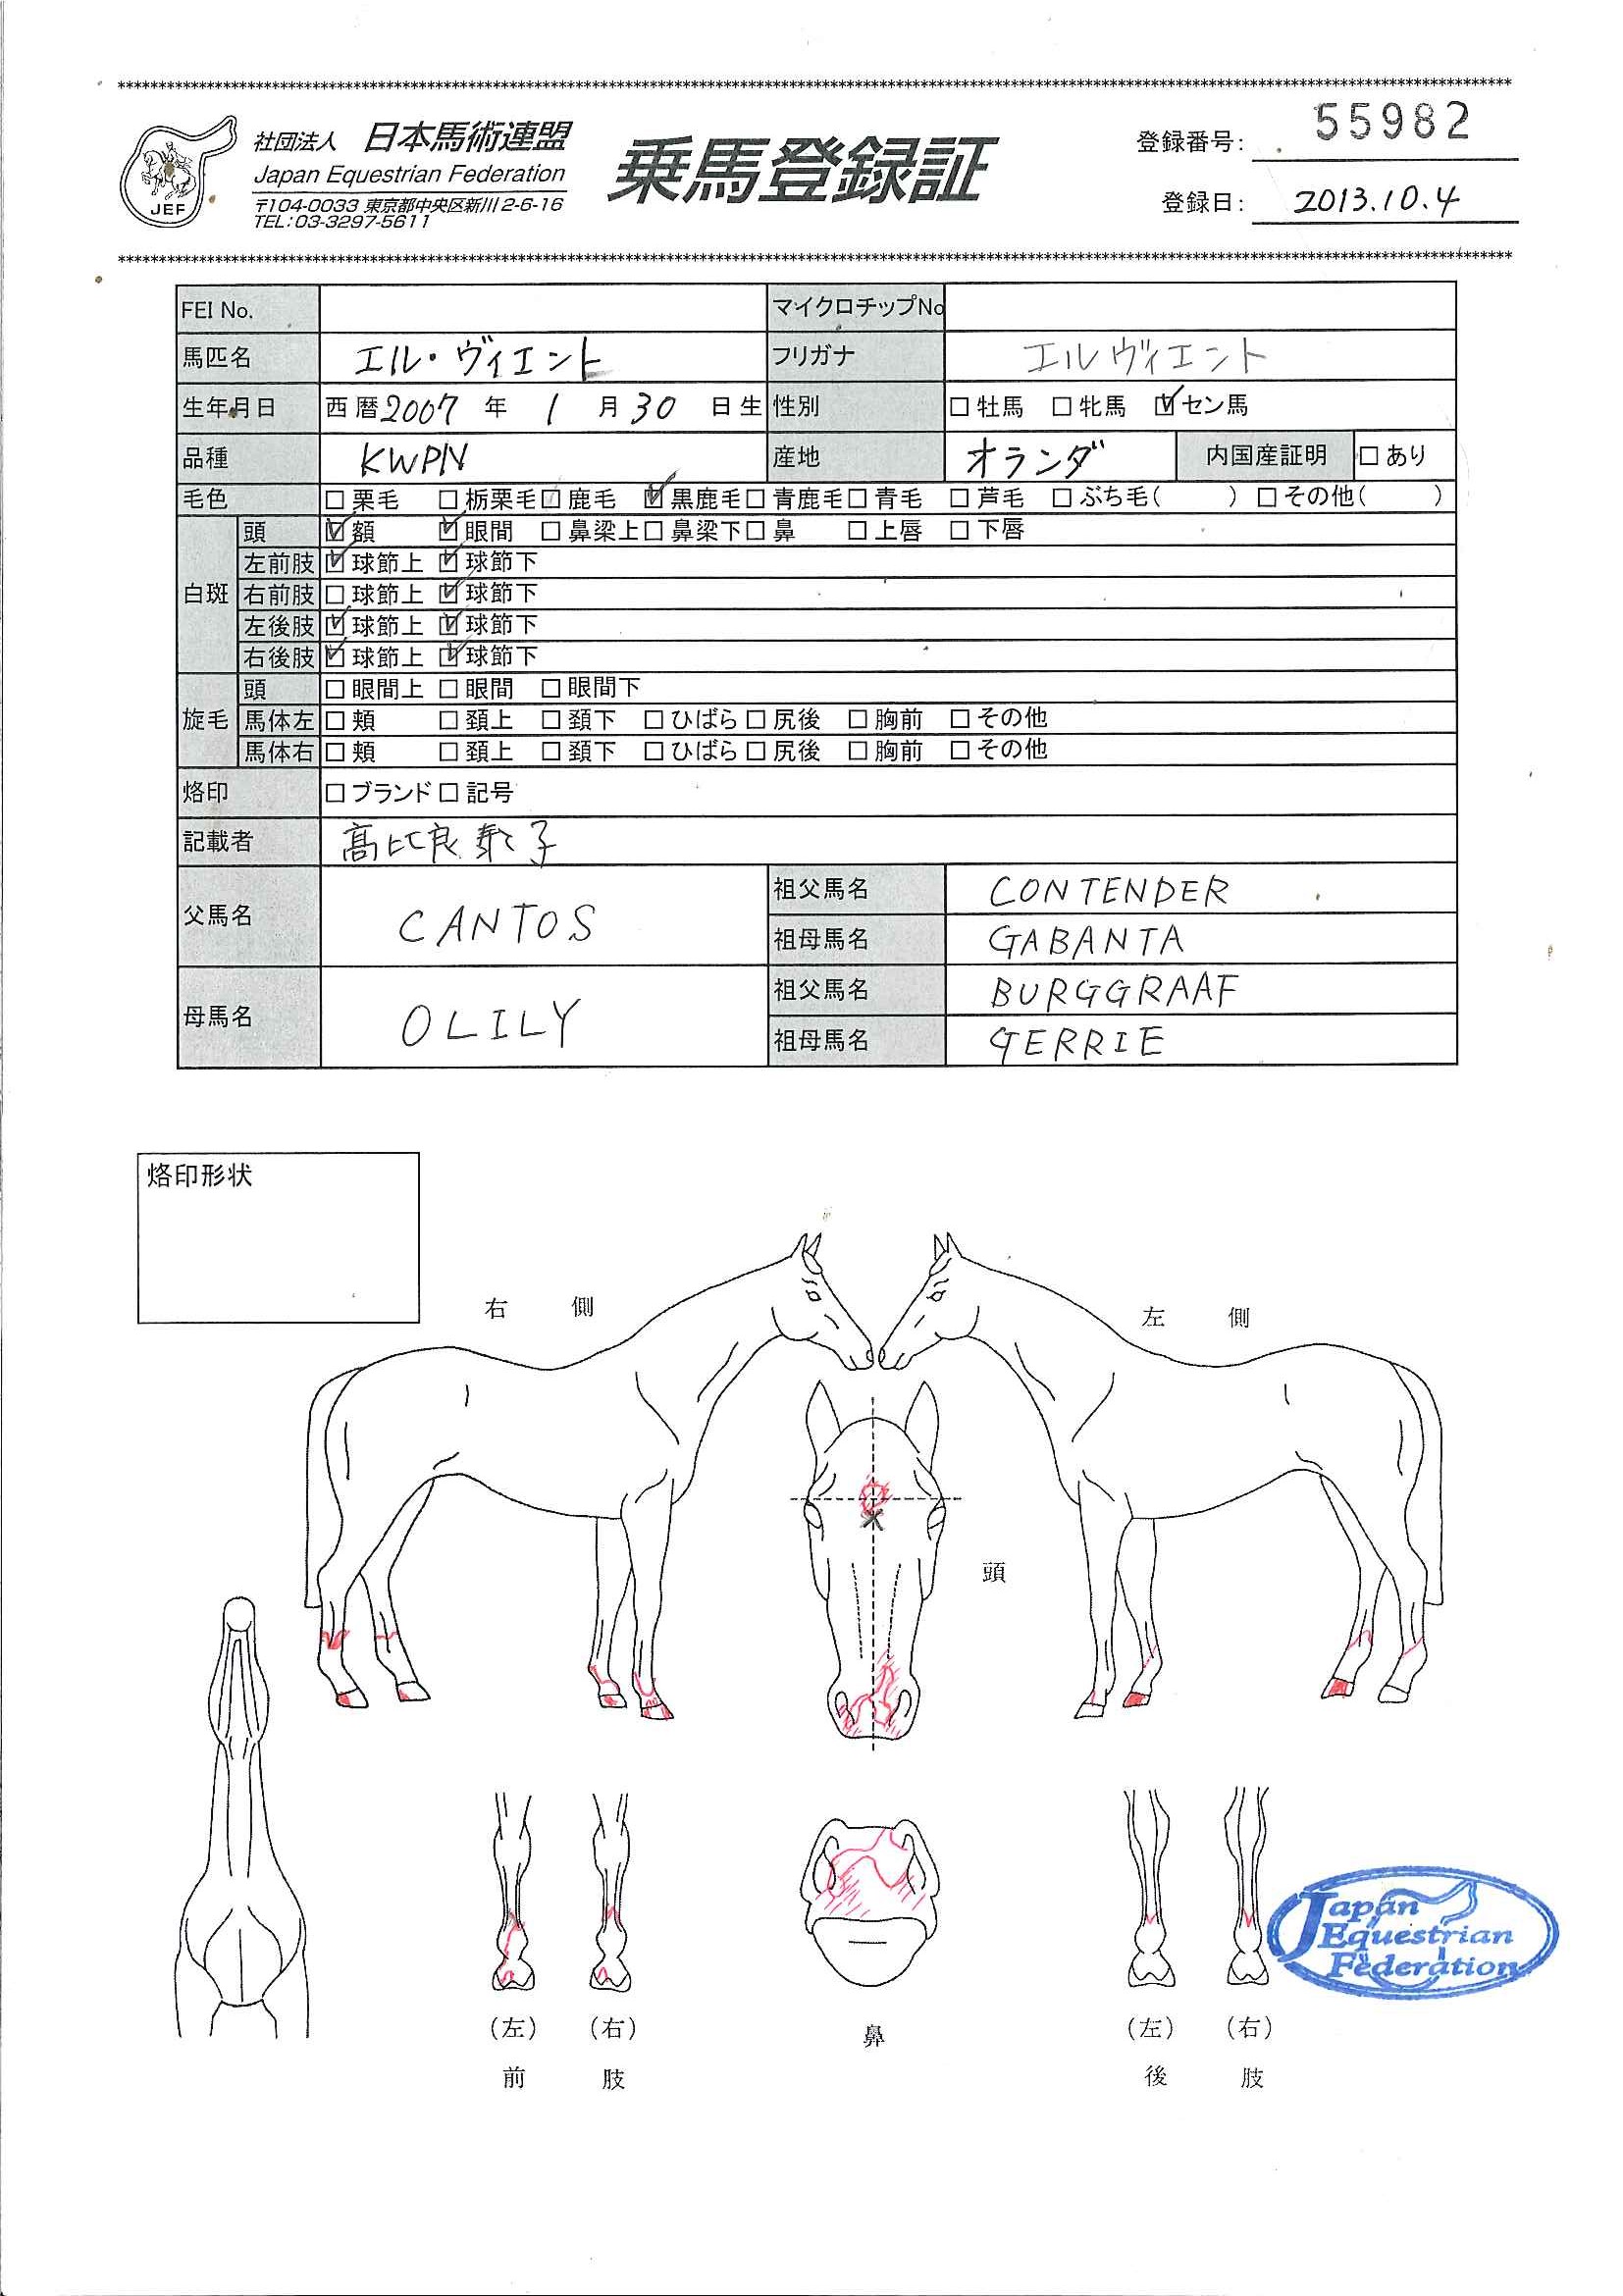 社団法人 日本馬術連盟
Japan Equestrian Federation
〒104-0033 東京都中央区新川2-6-16
TEL:03-3297-5611
JEF
乗馬登録証
登録番号: 55982
登録日: 2013.10.4
FEI No. マイクロチップNo
馬匹名 エル・ヴィエント フリガナ エルヴィエント
生年月日 西暦2007年 1月30日生 性別 □牡馬 □牝馬 ☑セン馬
品種 KWPN 産地 オランダ 内国産証明 □あり
毛色 □栗毛 □栃栗毛 □鹿毛 ☑黒鹿毛 □青鹿毛 □青毛 □芦毛 □ぶち毛( ) □その他( )
白斑 頭 ☑額 ☑眼間 □鼻梁上 □鼻梁下 □鼻 □上唇 □下唇
左前肢 ☑球節上 ☑球節下
右前肢 □球節上 ☑球節下
左後肢 ☑球節上 ☑球節下
右後肢 ☑球節上 ☑球節下
旋毛 頭 □眼間上 □眼間 □眼間下
馬体左 □頬 □頚上 □頚下 □ひばら □尻後 □胸前 □その他
馬体右 □頬 □頚上 □頚下 □ひばら □尻後 □胸前 □その他
烙印 □ブランド □記号
記載者 髙比良泰子
父馬名 CANTOS 祖父馬名 CONTENDER
祖母馬名 GABANTA
母馬名 OLILY 祖父馬名 BURGGRAAF
祖母馬名 GERRIE
烙印形状
右側 左側
頭
(左) (右) 鼻 (左) (右)
前肢 後肢
Japan
Equestrian
Federation